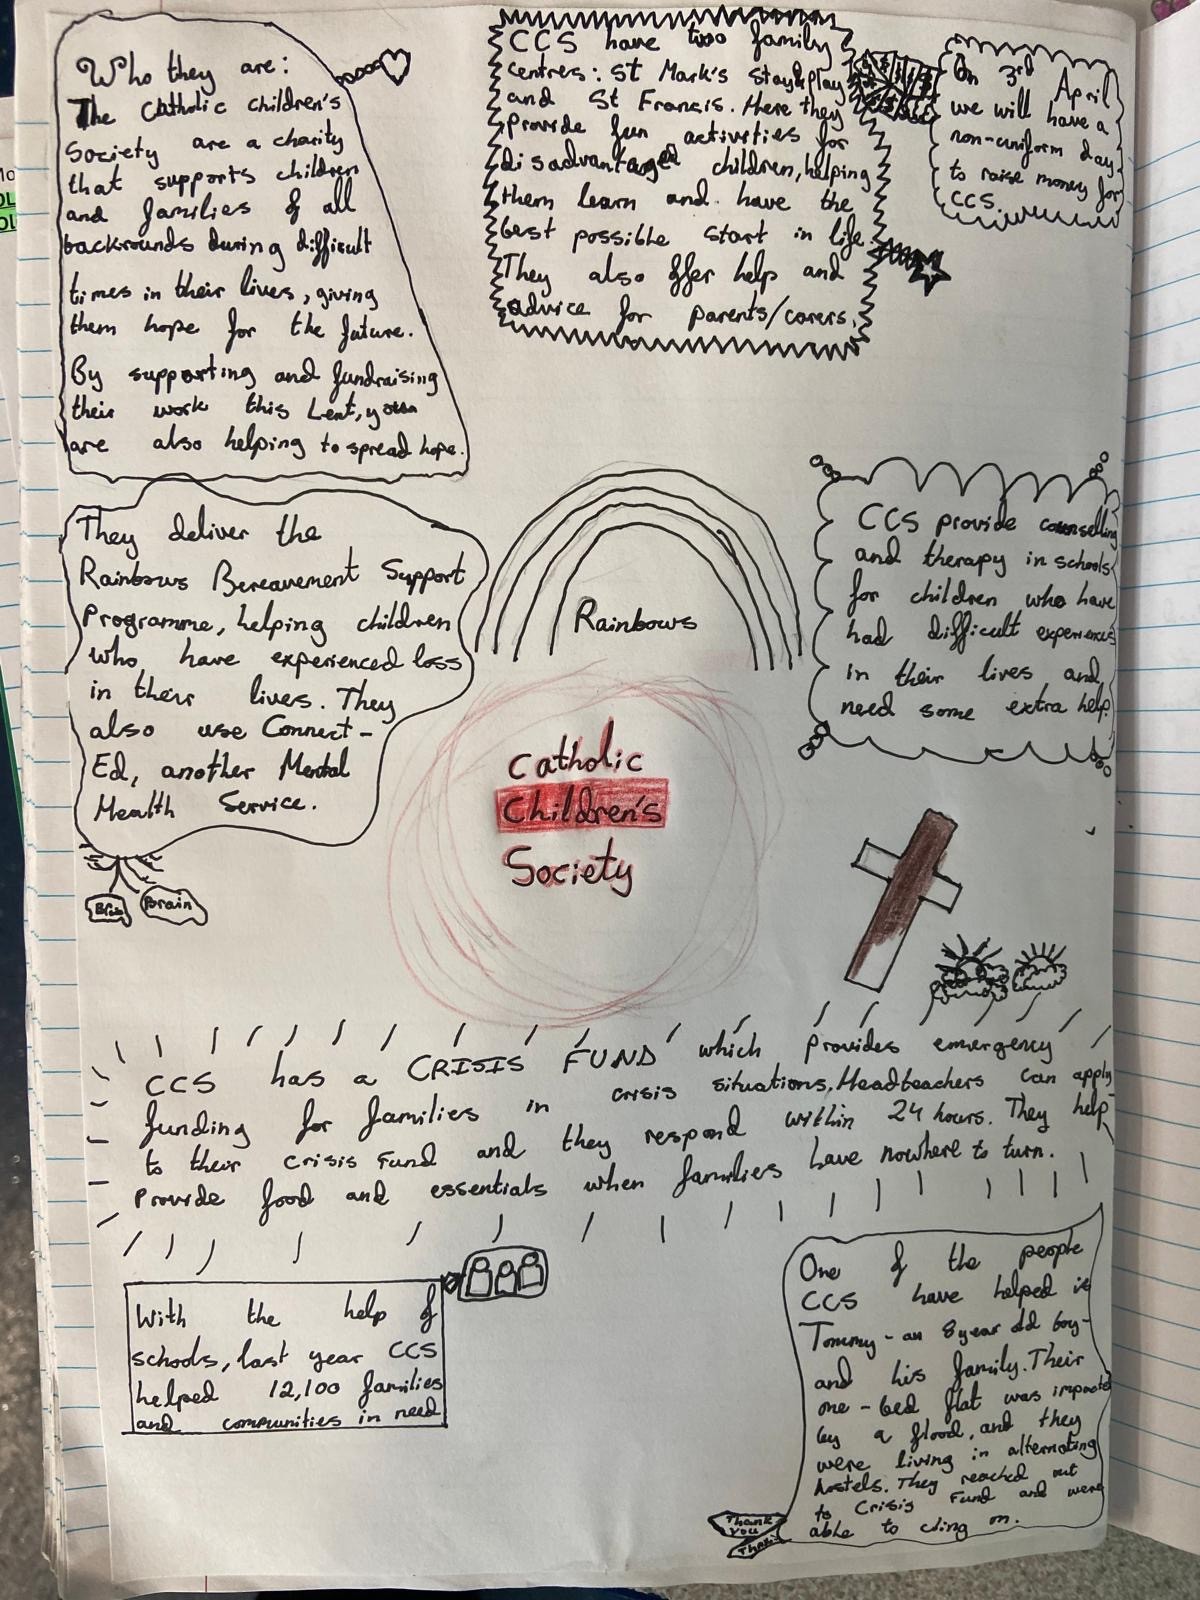 Who they are:
The Catholic children's
Society are a charity
that supports children
and families of all
backrounds during difficult
times in their lives, giving
them hope for the future.
By supporting and fundraising
their work this Lent, you
are also helping to spread hope.
CCS have two family
centres: St Mark's stay&play
and St Francis. Here they
provide fun activities for
disadvantaged children, helping
them learn and have the
best possible start in life.
They also offer help and
advice for parents/carers.
On 3rd April
we will have a
non-uniform day
to raise money for
CCS.
They deliver the
Rainbows Bereavement Support
Programme, helping children
who have experienced loss
in their lives. They
also use Connect-
Ed, another Mental
Health Service.
Brain
Rainbows
CCS provide counselling
and therapy in schools
for children who have
had difficult experiences
in their lives and
need some extra help.
Catholic
Children's
Society
CCS has a CRISIS FUND which provides emergency
funding for families in crisis situations. Headteachers can apply
to their crisis Fund and they respond within 24 hours. They help
provide food and essentials when families have nowhere to turn.
With the help of
schools, last year CCS
helped 12,100 families
and communities in need
One of the people
CCS have helped is
Tommy - an 8 year old boy -
and his family. Their
one-bed flat was impacted
by a flood, and they
were living in alternating
hostels. They reached out
to Crisis Fund and were
able to cling on.
Thank
you